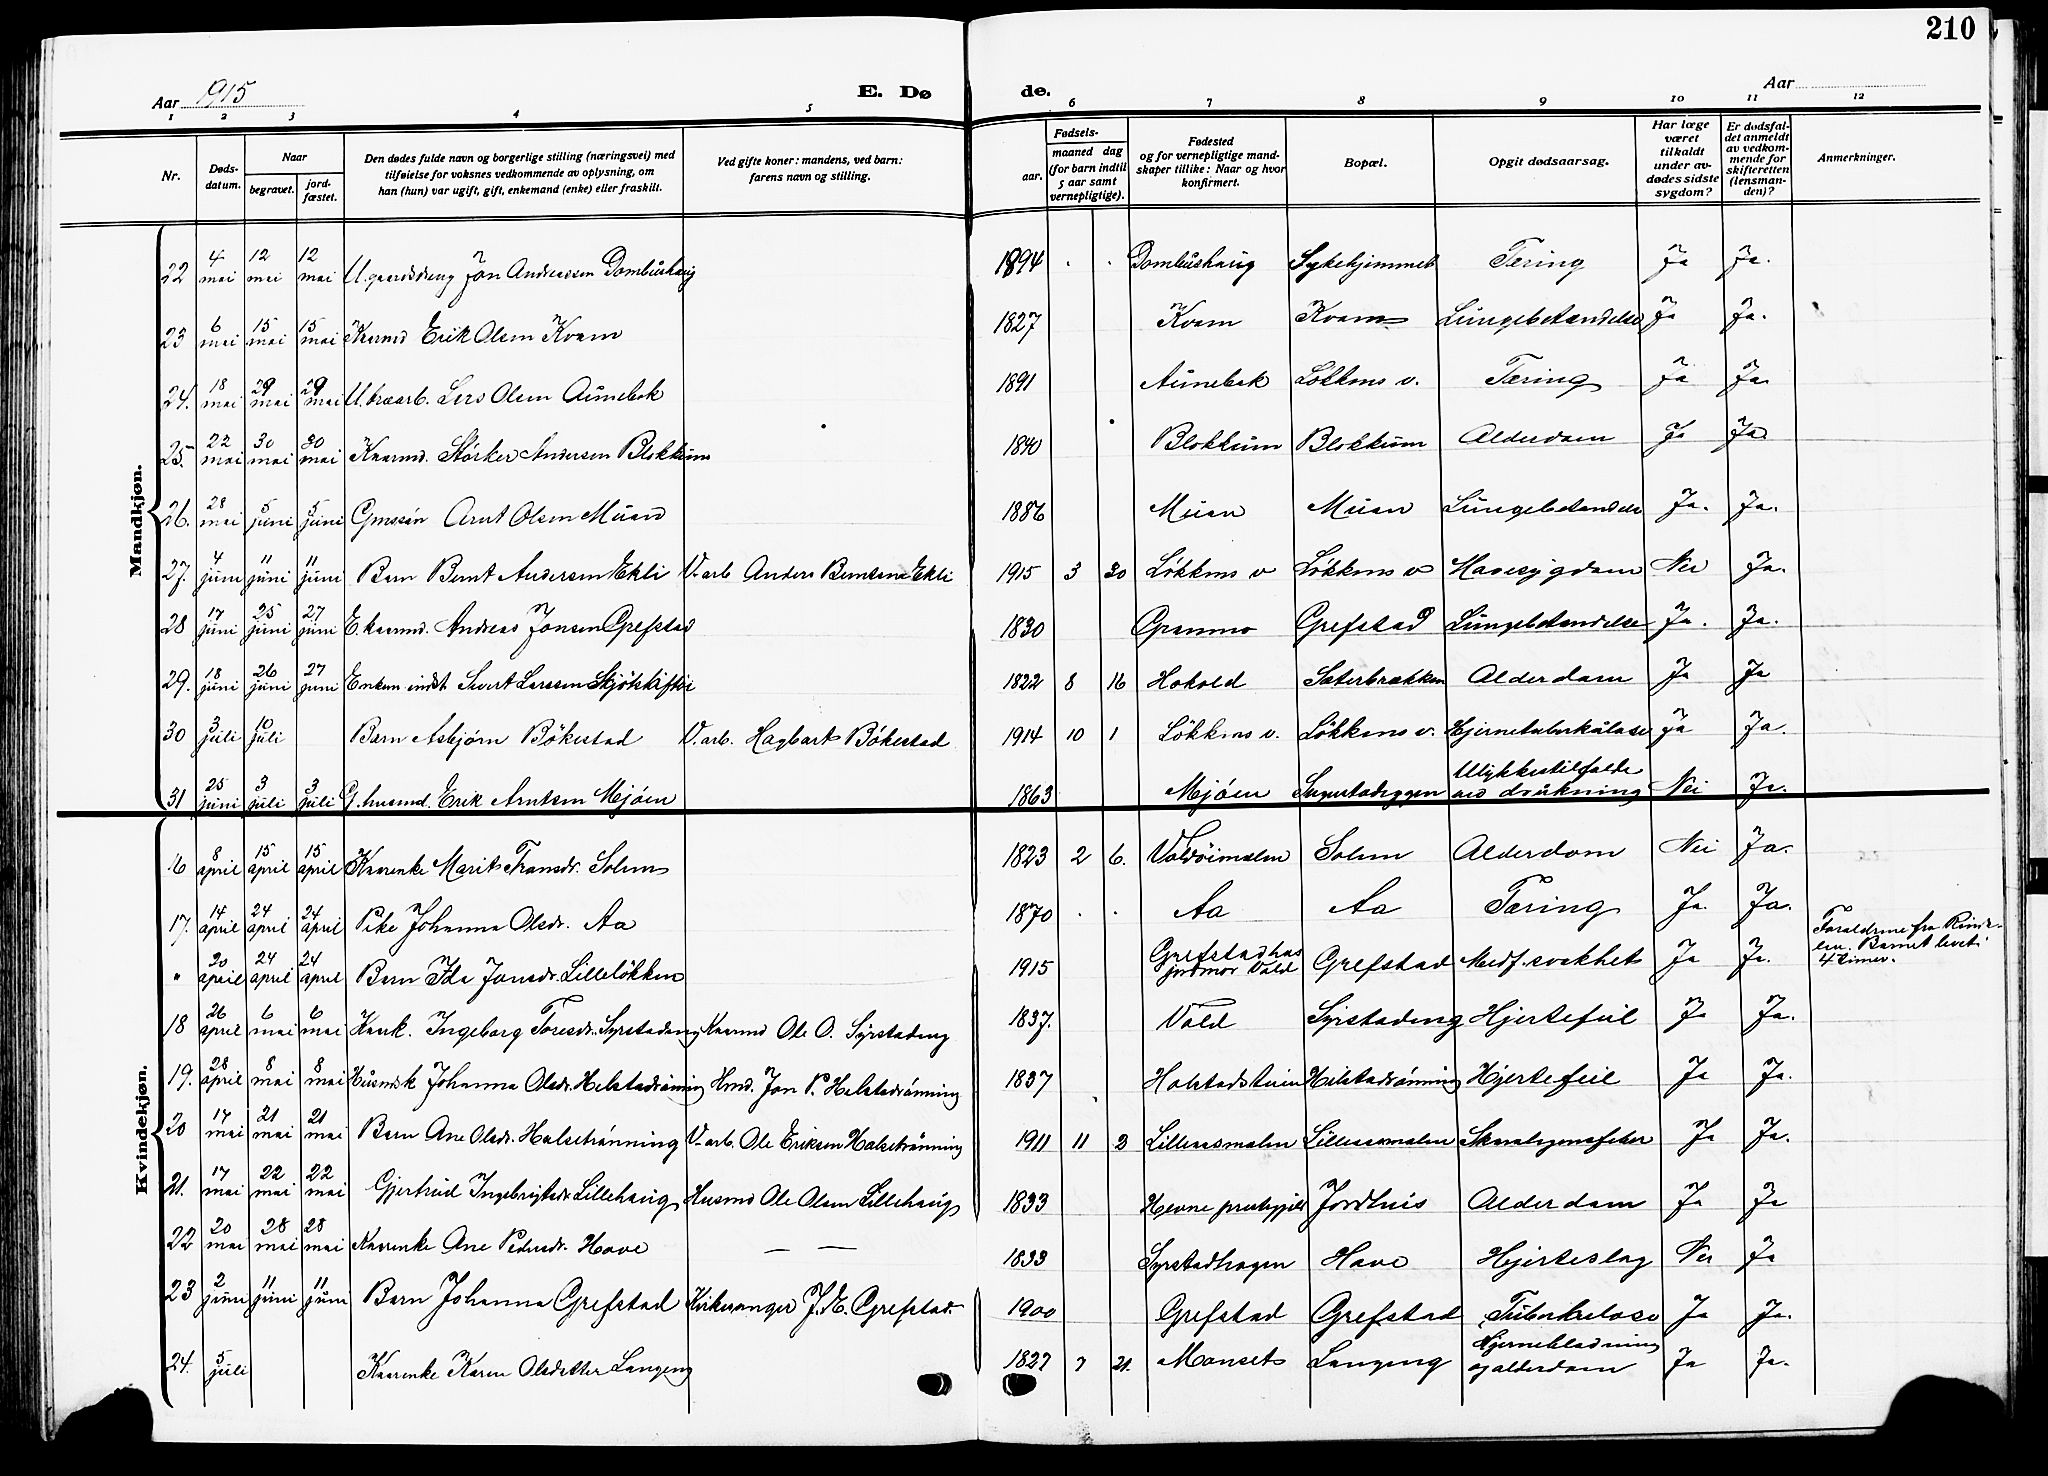 210
Aar 1915
E. Dø de.
Aar
1 2 3 4 5 6 7 8 9 10 11 12
Nr.
Døds-
datum.
Naar
begravet.
jord-
fæstet.
Den dødes fulde navn og borgerlige stilling (næringsvei) med
tilføielse for voksnes vedkommende av oplysning, om
han (hun) var ugift, gift, enkemand (enke) eller fraskilt.
Ved gifte koner: mandens, ved barn:
farens navn og stilling.
Fødsels-
aar.
maaned dag
(for barn indtil
5 aar samt
vernepligtige).
Fødested
og for vernepligtige mand-
skaper tillike: Naar og hvor
konfirmert.
Bopæl.
Opgit dødsaarsag.
Har læge
været
tilkaldt
under av-
dødes sidste
sygdom?
Er dødsfal-
det anmeldt
av vedkom-
mende for
skifteretten
(lensman-
den)?
Anmerkninger.
Mandkjøn.
22 4 mai 12 mai 12 mai U. gaardsdreng Jon Andreassen Dombushaug 1894 . . Dombushaug Sykehjemmet Tæring Ja Ja.
23 6 mai 15 mai 15 mai Kaarmd Erik Olsen Kvam 1827 Kvam Kvam Lungebetændelse Ja Ja.
24. 18 mai 29 mai 29 mai U. Lars Olsen Aunebak 1891 Aunebak Løkkens v. Tæring Ja Ja.
25. 22 mai 30 mai 30 mai Kaarmd. Størker Andersen Blokkum 1840 Blokkum Blokkum Alderdom Ja Ja.
26. 28 mai 5 juni 5 juni Arnt Olsen Muan 1886 Muan Muan Lungebetændelse Ja. Ja.
27. 4 juni 11 juni 11 juni Barn Bernt Andersen Ekli V.arb Anders Berntsen Ekli 1915 3 20 Løkkens v Løkkens v Mavesygdom Nei Ja.
28 17 juni 25 juni 27 juni E. kaarmd. Andreas Jonsen Grefstad 1830 Gramno Grefstad Lungebetændelse Ja. Ja.
29. 18 juni 26 juni 27 juni Enkem. indst. Sivert Larssen 1822 8 16 Hokold Sæterbrækken Alderdom Ja Ja
30 3 juli 10 juli Barn Asbjørn Bökestad V.arb. Hagbart Bökestad 1914 10 1 Løkkens v. Løkkens v. Hjernetuberkulose Ja Ja.
31 25 juni 3 juli 3 juli G. husmd. Erik Arntsen Mjøen 1863 Mjøen Ulykkestilfælde
ved drukning Nei Ja.
Kvindekjøn.
16 8 april 15 april 15 april Kaarenke Marit Fransdr. Solem 1823 2 6. Voldöimalen Solem Alderdom Nei Ja.
17. 14 april 24 april 24 april Pike Johanna Olsdr. Aa 1870 . . Aa Aa Tæring Ja. Ja.
" 20 april 24 april 24 april Barn Ida Jonsdr. Lilleløkken 1915 Grefstadhus
jordmor Vold Grefstad Medf. svakhet Ja Ja. Forældrene fra Rinda-
len. Barnet levet
4 timer.
18 26 april 6 mai 6 mai Kaark. Ingeborg Toresdr. Syrstadeng Kaarmd Ole O. Syrstadeng 1837. Vold Syrstadeng Hjertefeil Ja Ja.
19. 28 april 8 mai 8 mai Husmdsk Johanna Olsdr. Helstadrönning Hmd. Jon P. Helstadrönning 1837 Holstadstuen Helstadrönning Hjertefeil Ja Ja.
20 17 mai 21 mai 21 mai Barn Ane Olsdr. Halsetrønning V.arb. Ole Eriksen Halsetrønning 1911 11 3 Lilleaasmalen Lilleaasmalen Skarlagensfeber Ja Ja.
21. 17 mai 22 mai 22 mai Gjertrud Ingebrigtsdr. Lillehaug Husmd Ole Olsen Lillehaug 1833 Hevne præstegjeld Jordhus Alderdom Ja Ja
22 20 mai 28 mai 28 mai Kaarenke Ane Pedersdr. Hove — — 1833 Syrstadhagen Hove Hjerteslag Nei Ja
23 2 juni 11 juni 11 juni Barn Johanna Grefstad Kirkesanger J. E. Grefstad 1900 Grefstad Grefstad Tuberkulose Ja Ja.
24. 5 juli Kaarenke Karen Olsdatter Langeng 1827 7 21. Monset Langeng Hjerneblødning
og alderdom Ja Ja.